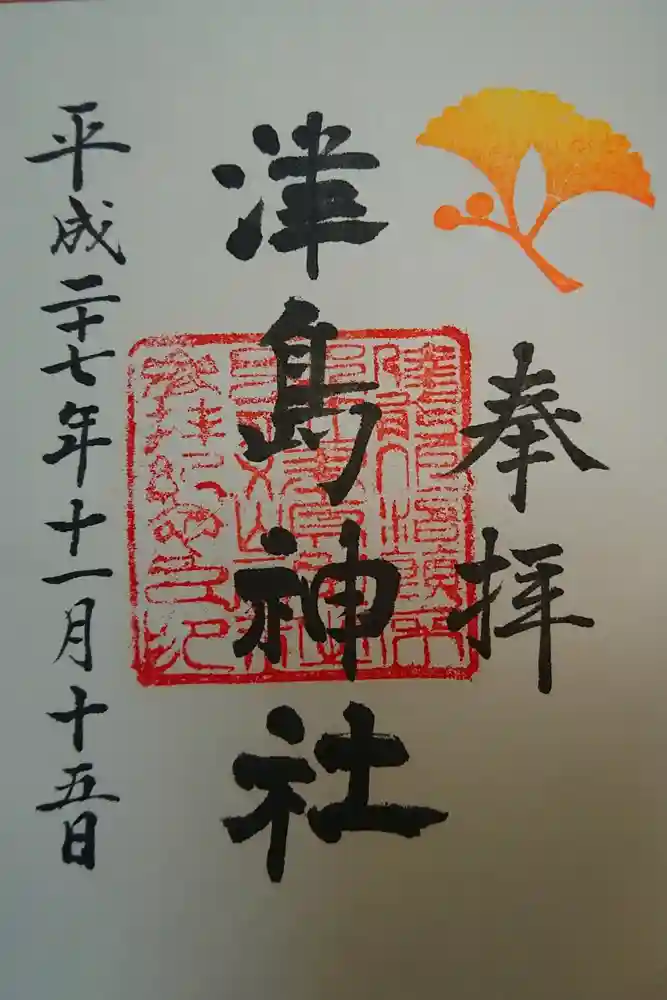 奉拝
津島神社
平成二十七年十一月十五日